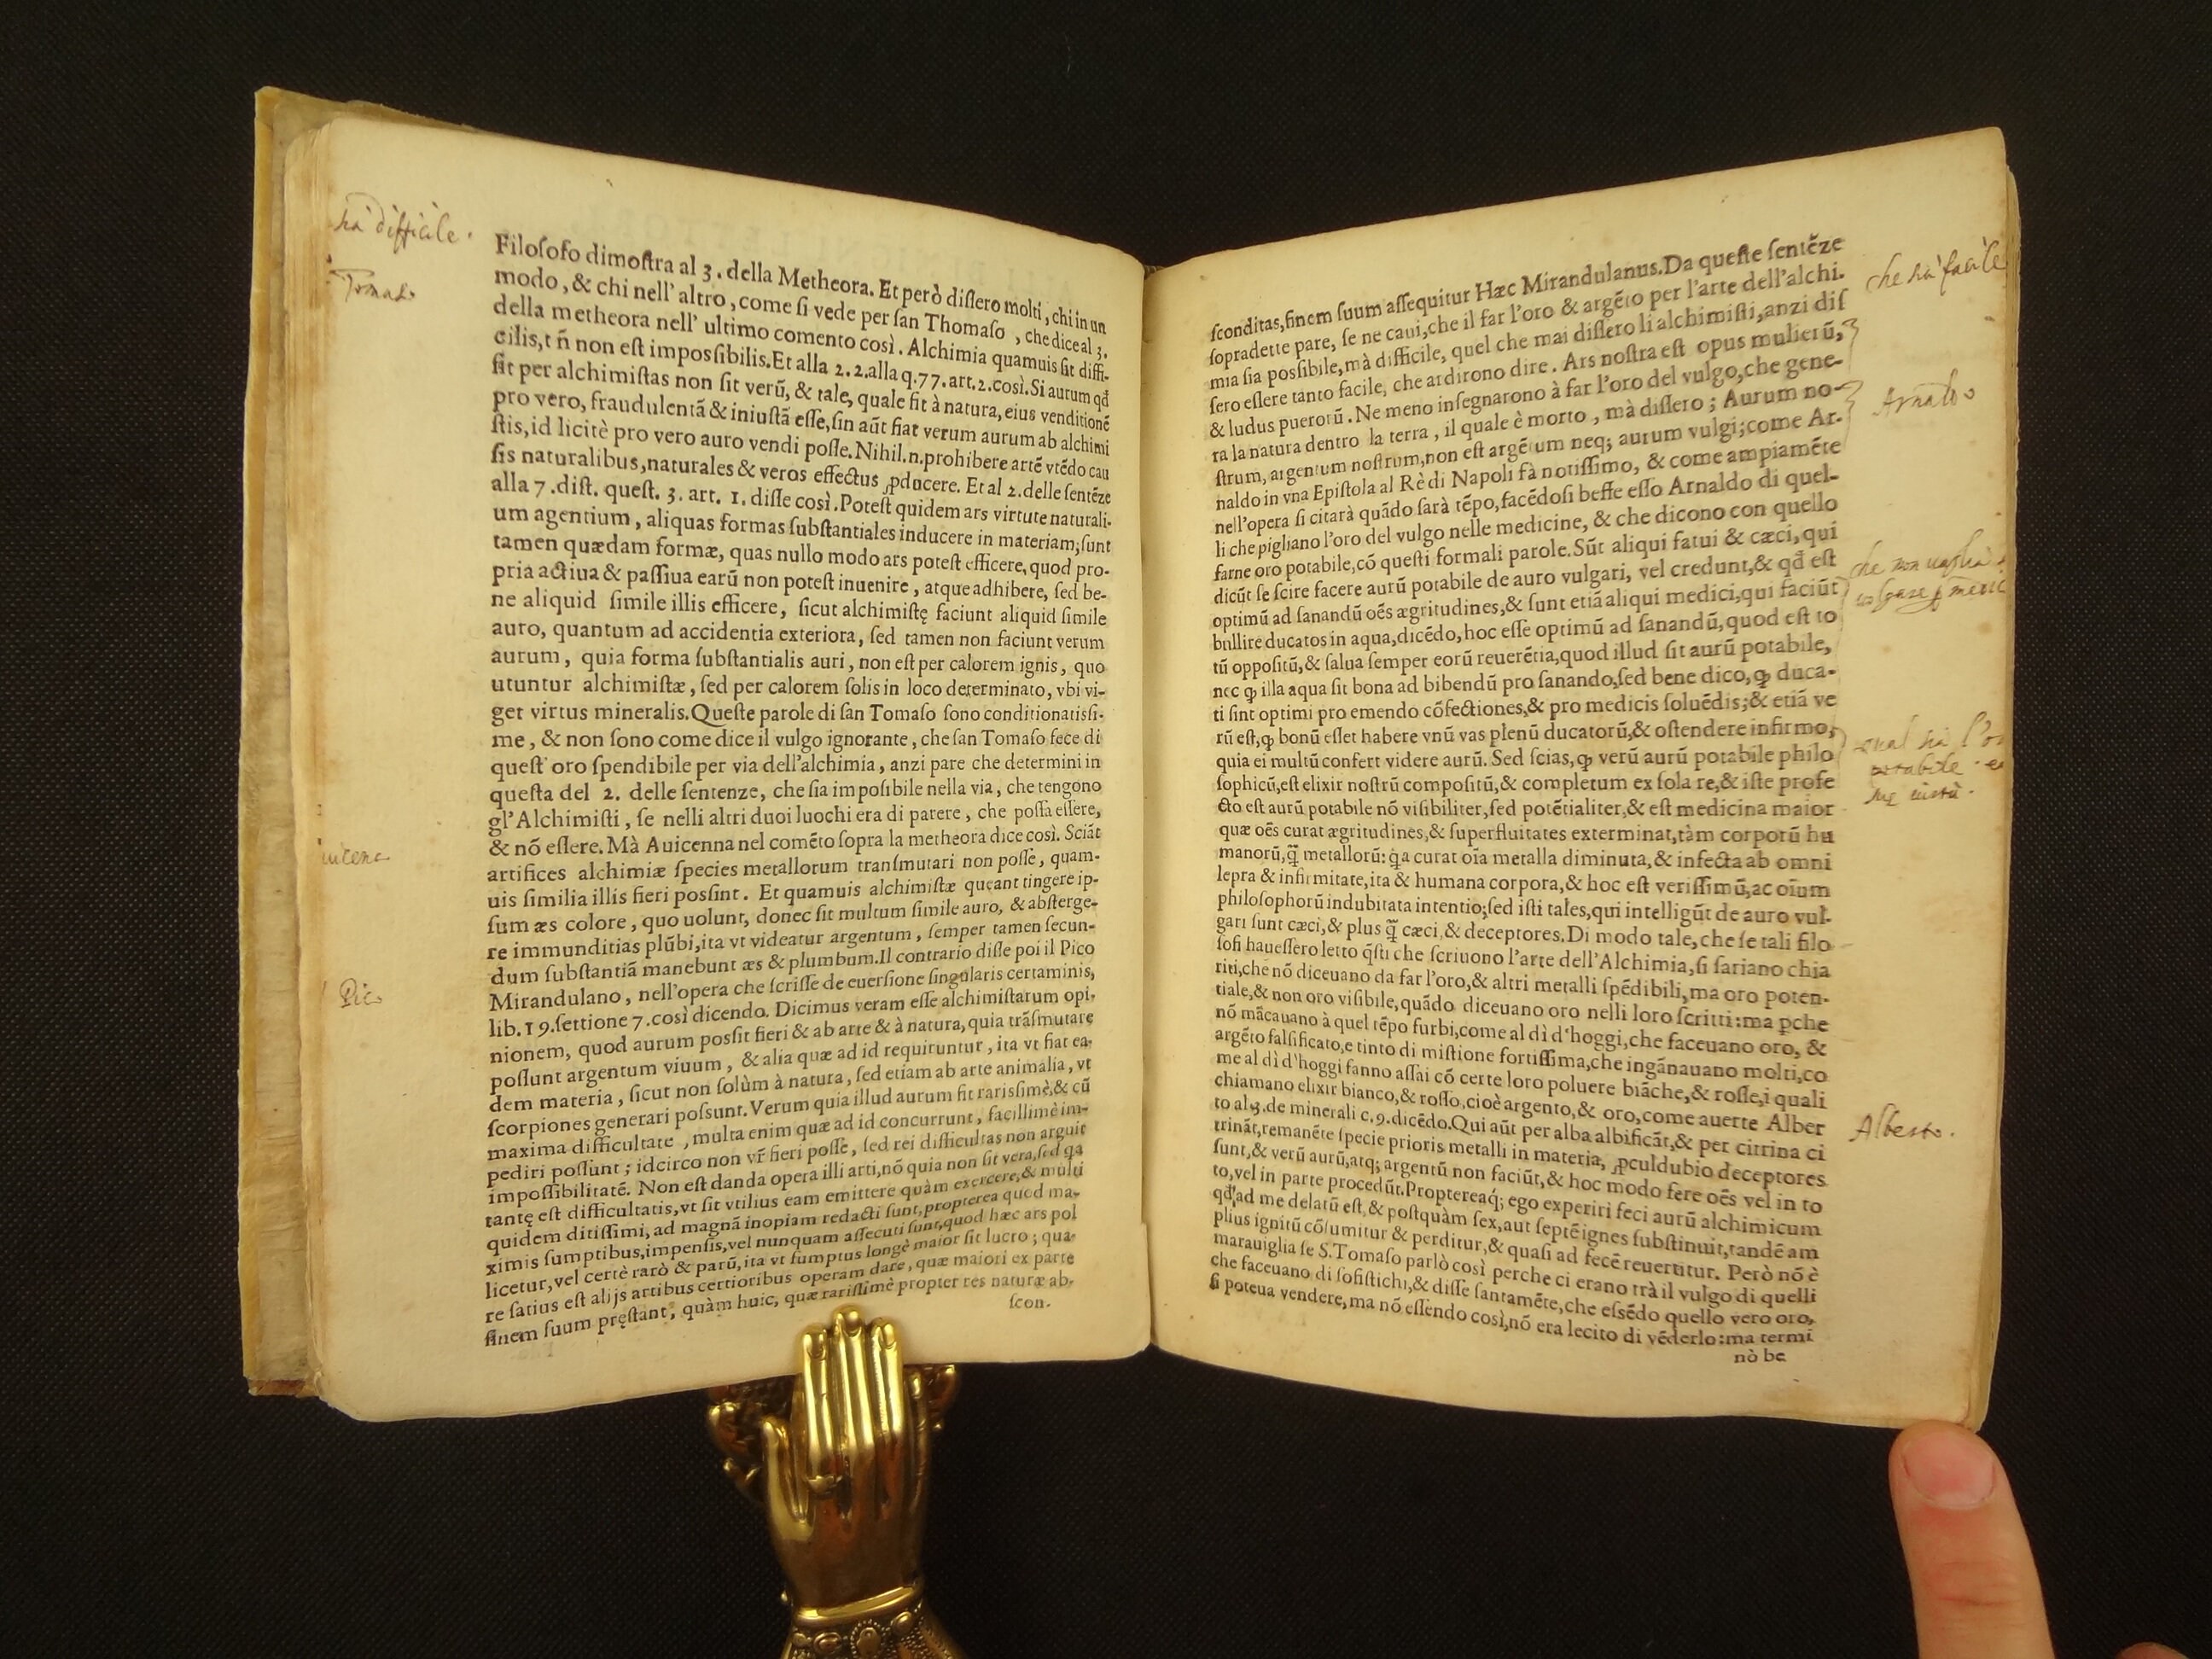 sia difficile.
Tomaso
Filoſofo dimoſtra al 3. della Metheora. Et però diſſero molti, chi in un
modo, & chi nell' altro, come ſi vede per ſan Thomaſo, che dice al 3.
della metheora nell' ultimo comento così. Alchimia quamuis ſit diffi-
cilis, tñ non eſt impoſsibilis. Et alla 2.2. alla q.77. art.2. così. Si aurum qđ
fit per alchimiſtas non ſit verũ, & tale, quale fit à natura, eius venditionẽ
pro vero, fraudulentã & iniuſtã eſſe, ſin aũt fiat verum aurum ab alchimi
ſtis, id licitè pro vero auro vendi poſſe. Nihil.n. prohibere artẽ vtẽdo cau
ſis naturalibus, naturales & veros effectus ꝓducere. Et al 2. delle ſentẽze
alla 7. diſt. queſt. 3. art. 1. diſſe così. Poteſt quidem ars virtute naturali-
um agentium, aliquas formas ſubſtantiales inducere in materiam; ſunt
tamen quædam formæ, quas nullo modo ars poteſt efficere, quod pro-
pria actiua & paſſiua earũ non poteſt inuenire, atque adhibere, ſed be-
ne aliquid ſimile illis efficere, ſicut alchimiſtę faciunt aliquid ſimile
auro, quantum ad accidentia exteriora, ſed tamen non faciunt verum
aurum, quia forma ſubſtantialis auri, non eſt per calorem ignis, quo
utuntur alchimiſtæ, ſed per calorem ſolis in loco determinato, vbi vi-
get virtus mineralis. Queſte parole di ſan Tomaſo ſono conditionatiſſi-
me, & non ſono come dice il vulgo ignorante, che ſan Tomaſo fece di
queſt' oro ſpendibile per via dell'alchimia, anzi pare che determini in
queſta del 2. delle ſentenze, che ſia impoſibile nella via, che tengono
gl'Alchimiſti, ſe nelli altri duoi luochi era di parere, che poſſa eſſere,
& nõ eſſere. Mà Auicenna nel comẽto ſopra la metheora dice così. Sciãt
artifices alchimiæ ſpecies metallorum tranſmutari non poſſe, quam-
uis ſimilia illis fieri poſſint. Et quamuis alchimiſtæ queant tingere ip-
ſum æs colore, quo uolunt, donec ſit multum ſimile auro, & abſterge-
re immunditias plũbi, ita vt videatur argentum, ſemper tamen ſecun-
dum ſubſtantiã manebunt æs & plumbum. Il contrario diſſe poi il Pico
Mirandulano, nell'opera che ſcriſſe de euerſione ſingularis certaminis,
lib. 19. ſettione 7. così dicendo. Dicimus veram eſſe alchimiſtarum opi-
nionem, quod aurum poſsit fieri & ab arte & à natura, quia trãſmutare
poſſunt argentum viuum, & alia quæ ad id requiruntur, ita vt fiat ea-
dem materia, ſicut non ſolùm à natura, ſed etiam ab arte animalia, vt
ſcorpiones generari poſsunt. Verum quia illud aurum fit rariſsimè, & cũ
maxima difficultate, multa enim quæ ad id concurrunt, facillimè im-
pediri poſſunt; idcirco non vr̃ fieri poſſe, ſed rei difficultas non arguit
impoſſibilitatẽ. Non eſt danda opera illi arti, nõ quia non ſit vera, ſed qa
tantę eſt difficultatis, vt ſit vtilius eam emittere quàm exercere, & multi
quidem ditiſſimi, ad magnã inopiam redacti ſunt, propterea quod ma-
ximis ſumptibus, impenſis, vel nunquam aſſecuti ſunt, quod hæc ars pol
licetur, vel certè rarò & parũ, ita vt ſumptus longè maior ſit lucro; qua-
re ſatius eſt alijs artibus certioribus operam dare, quæ maiori ex parte
finem ſuum pręſtant, quàm huic, quæ rariſſimè propter res naturæ ab-
ſcon.
uicena
Pico
ſconditas, finem ſuum aſſequitur Hæc Mirandulanus. Da queſte ſentẽze
ſopradette pare, ſe ne caui, che il far l'oro & argẽto per l'arte dell'alchi-
mia ſia poſsibile, mà difficile, quel che mai diſſero li alchimiſti, anzi diſ
ſero eſſere tanto facile, che ardirono dire. Ars noſtra eſt opus mulierũ,
& ludus puerorũ. Ne meno inſegnarono à far l'oro del vulgo, che gene-
ra la natura dentro la terra, il quale è morto, mà diſſero; Aurum no-
ſtrum, argentum noſtrum, non eſt argẽtum neq; aurum vulgi; come Ar-
naldo in vna Epiſtola al Rè di Napoli fà notiſſimo, & come ampiamẽte
nell'opera ſi citarà quãdo ſarà tẽpo, facẽdoſi beffe eſſo Arnaldo di quel-
li che pigliano l'oro del vulgo nelle medicine, & che dicono con quello
farne oro potabile, cõ queſti formali parole. Sũt aliqui fatui & cæci, qui
dicũt ſe ſcire facere aurũ potabile de auro vulgari, vel credunt, & qđ eſt
optimũ ad ſanandũ oẽs ægritudines, & ſunt etiã aliqui medici, qui faciũt
bullire ducatos in aqua, dicẽdo, hoc eſſe optimũ ad ſanandũ, quod eſt to
tũ oppoſitũ, & ſalua ſemper eorũ reuerẽtia, quod illud ſit aurũ potabile,
nec ꝙ illa aqua ſit bona ad bibendũ pro ſanando, ſed bene dico, ꝙ duca-
ti ſint optimi pro emendo cõfectiones, & pro medicis ſoluẽdis; & etiã ve
rũ eſt, ꝙ bonũ eſſet habere vnũ vas plenũ ducatorũ, & oſtendere infirmo,
quia ei multũ confert videre aurũ. Sed ſcias, ꝙ verũ aurũ potabile philo
ſophicũ, eſt elixir noſtrũ compoſitũ, & completum ex ſola re, & iſte profe
cto eſt aurũ potabile nõ viſibiliter, ſed potẽtialiter, & eſt medicina maior
quæ oẽs curat ægritudines, & ſuperfluitates exterminat, tàm corporũ hu
manorũ, q̃ metallorũ: q̃a curat oĩa metalla diminuta, & infecta ab omni
lepra & infirmitate, ita & humana corpora, & hoc eſt veriſſimũ, ac oĩum
philoſophorũ indubitata intentio; ſed iſti tales, qui intelligũt de auro vul-
gari ſunt cæci, & plus q̃ cæci, & deceptores. Di modo tale, che ſe tali filo
ſofi haueſſero letto q̃ſti che ſcriuono l'arte dell'Alchimia, ſi ſariano chia
riti, che nõ diceuano da far l'oro, & altri metalli ſpẽdibili, ma oro poten-
tiale, & non oro viſibile, quãdo diceuano oro nelli loro ſcritti: ma ꝑche
nõ mãcauano à quel tẽpo furbi, come al dì d'hoggi, che faceuano oro, &
argẽto falſificato, e tinto di miſtione fortiſſima, che ingãnauano molti, co
me al dì d'hoggi fanno aſſai cõ certe loro poluere biãche, & roſſe, i quali
chiamano elixir bianco, & roſſo, cioè argento, & oro, come auerte Alber
to al 3. de minerali c.9. dicẽdo. Qui aũt per alba albificãt, & per citrina ci
trinãt, remanẽte ſpecie prioris metalli in materia, ꝓculdubio deceptores
ſunt, & verũ aurũ, atq; argentũ non faciũt, & hoc modo fere oẽs vel in to
to, vel in parte procedũt. Propterea q́; ego experiri feci aurũ alchimicum
qđ ad me delatũ eſt, & poſtquàm ſex, aut ſeptẽ ignes ſubſtinuit, tandẽ am
plius ignitũ cõſumitur & perditur, & quaſi ad fecẽ reuertitur. Però nõ è
marauiglia ſe S. Tomaſo parlò così perche ci erano trà il vulgo di quelli
che faceuano di ſofiſtichi, & diſſe ſantamẽte, che eſsẽdo quello vero oro,
ſi poteua vendere, ma nõ eſſendo così, nõ era lecito di vẽderlo: ma termi
nò be
che sia facile
Arnaldo
che non uaglia
uolgare p medic
qual sia l'or
potabile
Alberto.